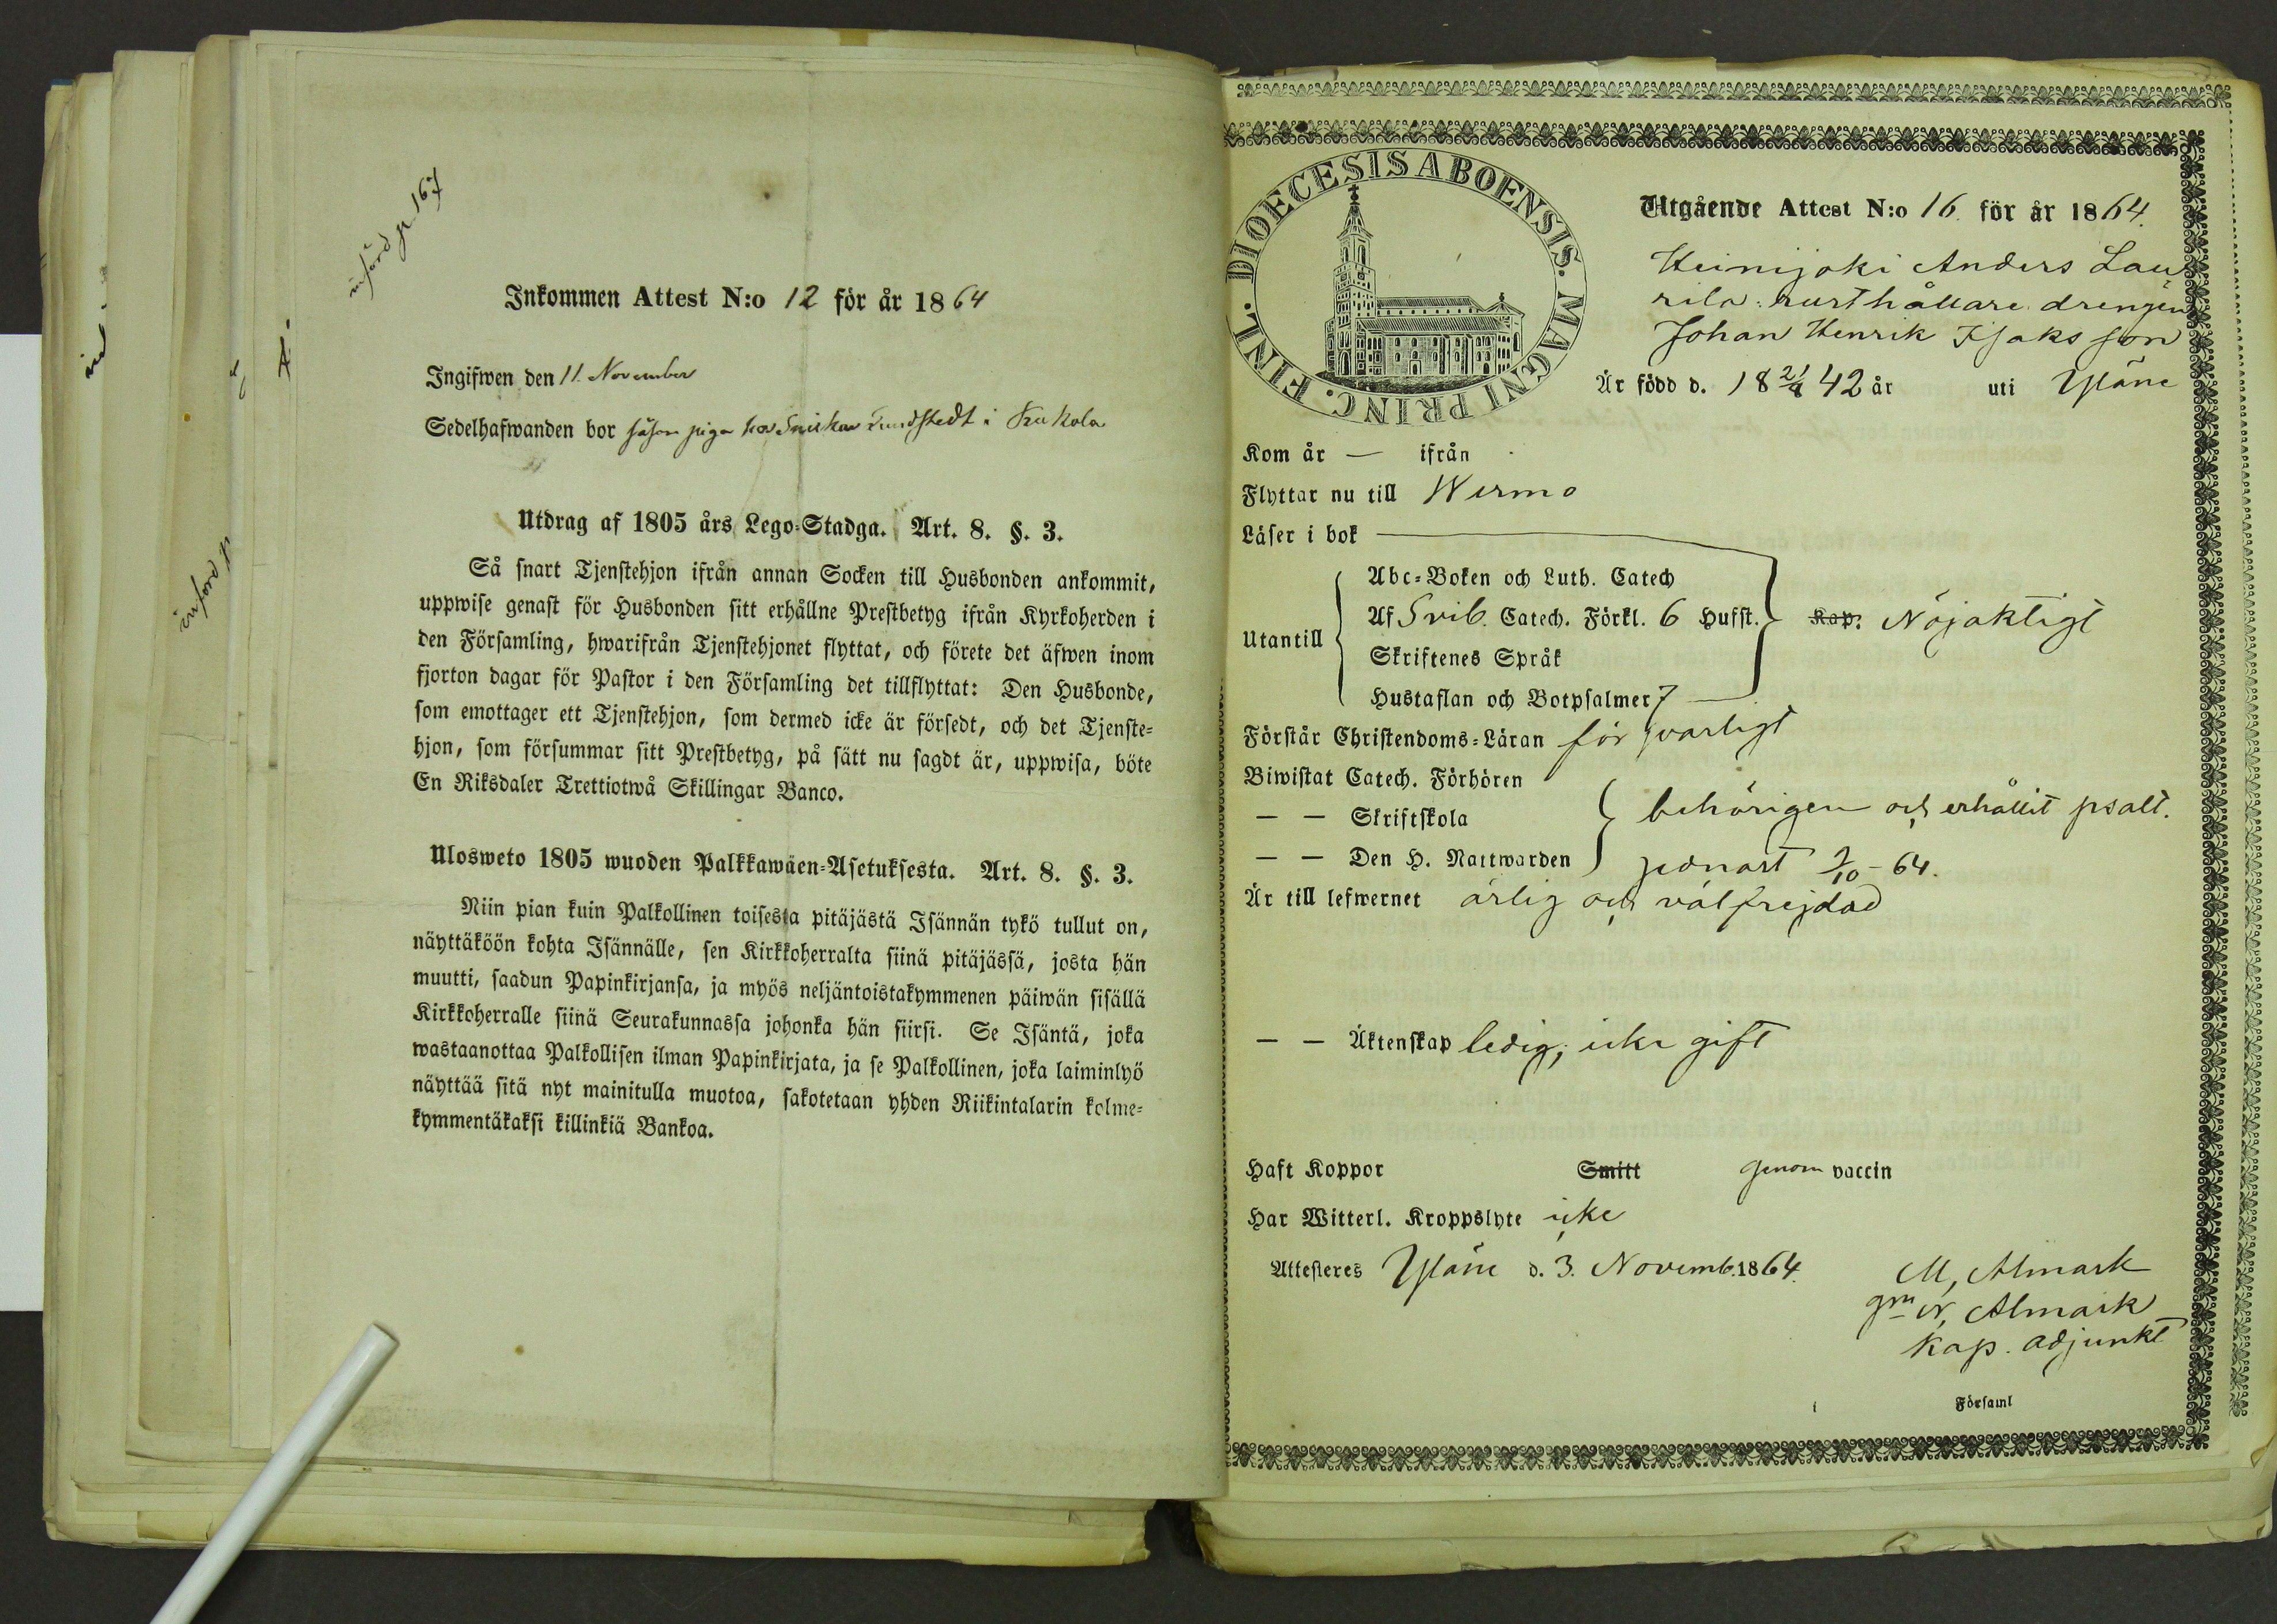 införd p 167
Inkommen Attest N:o 12 för år 1864
Ingifwen den 11. November
Sedelhafwanden bor såsom piga hos Snickar Lundstedt i Kukola
Utdrag af 1805 års Lego-Stadga. Art. 8. §. 3.
Så snart Tjenstehjon ifrån annan Socken till Husbonden ankommit,
uppwise genast för Husbonden sitt erhållne Prestbetyg ifrån Kyrkoherden i
den Församling, hwarifrån Tjenstehjonet flyttat, och förete det äfwen inom
fjorton dagar för Pastor i den Församling det tillflyttat: Den Husbonde,
som emottager ett Tjenstehjon, som dermed icke är försedt, och det Tjenste-
hjon, som försummar sitt Prestbetyg, på sätt nu sagdt är, uppwisa, böte
En Riksdaler Trettiotwå Skillingar Banco.
Ulosweto 1805 wuoden Palkkawäen-Asetuksesta. Art. 8. §. 3.
Niin pian kuin Palkollinen toisesta pitäjästä Isännän tykö tullut on,
näyttäköön kohta Isännälle, sen Kirkkoherralta siinä pitäjässä, josta hän
muutti, saadun Papinkirjansa, ja myös neljäntoistakymmenen päiwän sisällä
Kirkkoherralle siinä Seurakunnassa johonka hän siirsi. Se Isäntä, joka
wastaanottaa Palkollisen ilman Papinkirjata, ja se Palkollinen, joka laiminlyö
näyttää sitä nyt mainitulla muotoa, sakotetaan yhden Riikintalarin kolme-
kymmentäkaksi killinkiä Bankoa.
införd p
FINL. DIOECESIS ABOENSIS. MAGNI PRINC.
Utgående Attest N:o 16. för år 1864.
Heinijoki Anders Lau
rila: rusthållare drengen
Johan Henrik Isaksson
Är född d. 18 21/4 42 år uti Yläne
Kom år — ifrån
Flyttar nu till Wirmo
Läser i bok
Abc-Boken och Luth. Catech
Af Svib. Catech. Förkl. 6 Hufst. Kap. Nöjaktigt
Utantill
Skriftenes Språk
Hustaflan och Botpsalmer 7
Förstår Christendoms-Läran försvarligt
Biwistat Catech. Förhören
— — Skriftskola behörigen och erhållit psalt.
— — Den H. Nattwarden senast 2/10 - 64.
Är till lefwernet ärlig och välfrejdad
— — Äktenskap ledig, icke gift
Haft Koppor Smitt genom vaccin
Har Witterl. Kroppslyte icke
Attesteres Yläne d. 3. Novemb. 1864.
M, Almark
gm N, Almark
Kap. adjunkt
i Församl